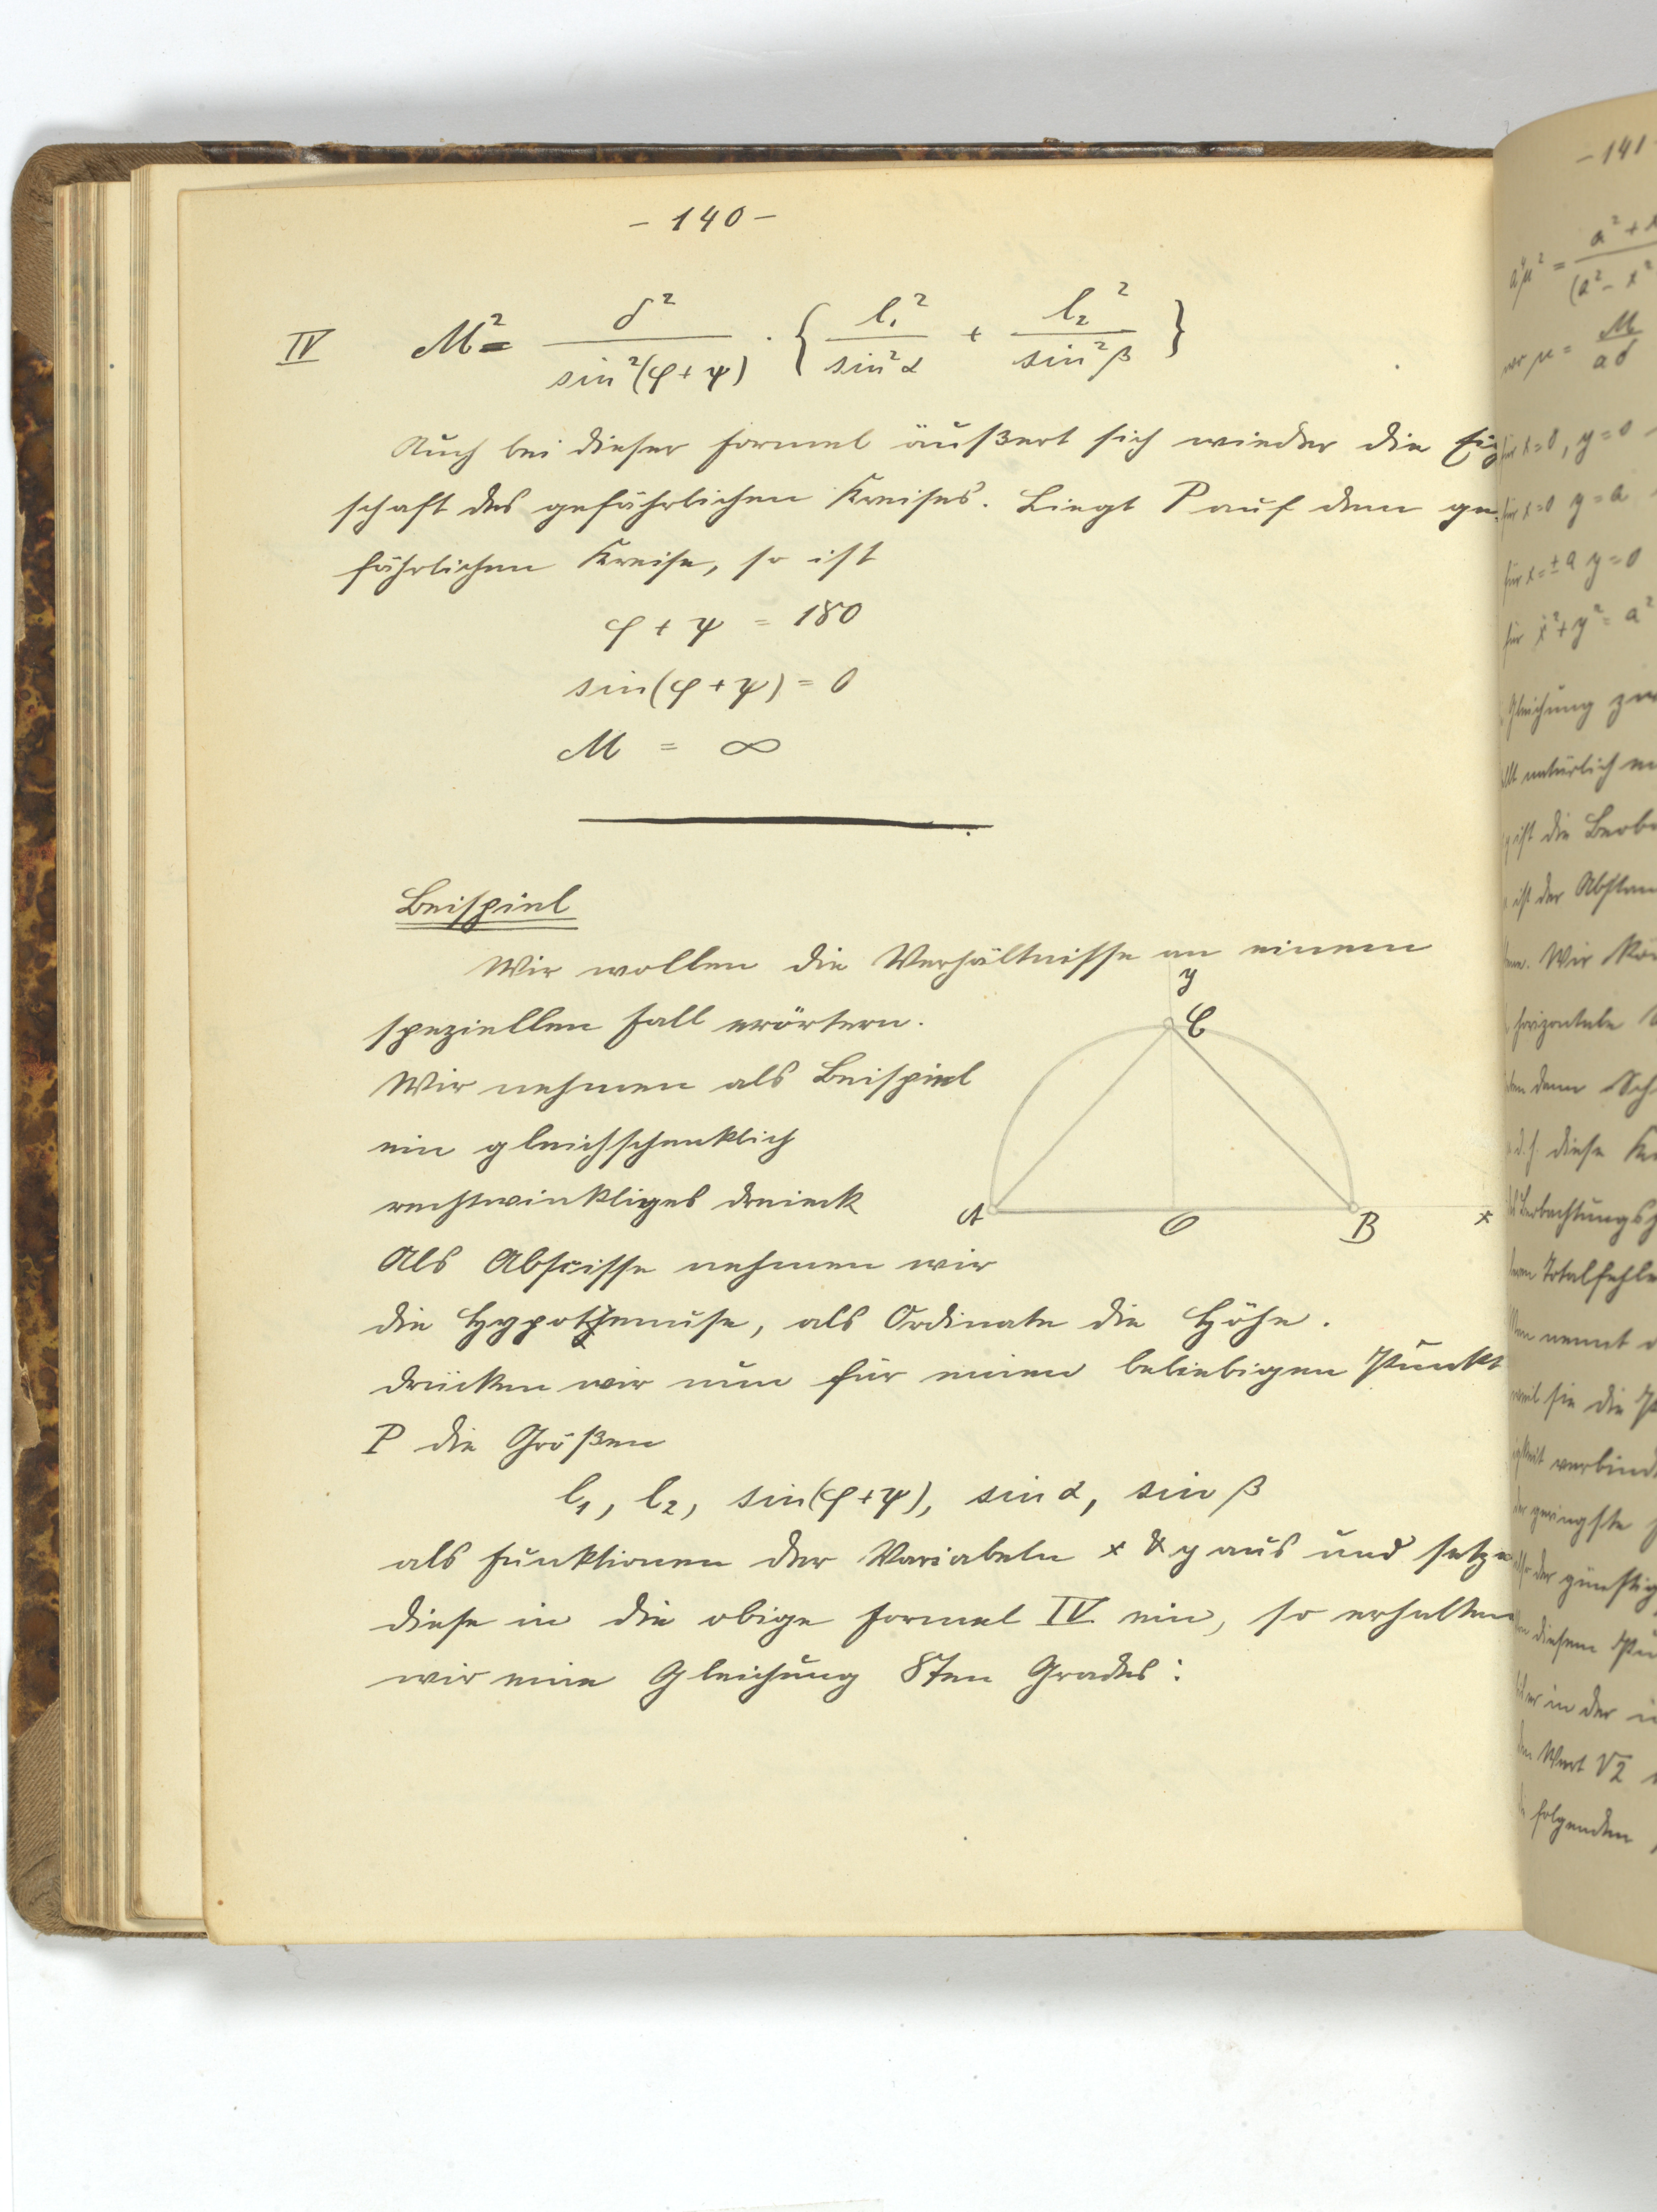 - 140 -
IV M² = δ² / sin²(φ+ψ) · { l₁² / sin²α + l₂² / sin²β }
Auch bei dieser Formel äußert sich wieder die Eig
schaft des gefährlichen Kreises. Liegt P auf dem ge-
fährlichen Kreise, so ist
φ + ψ = 180
sin(φ+ψ) = 0
M = ∞
Beispiel
Wir wollen die Verhältnisse an einem
speziellen Fall erörtern.
Wir nehmen als Beispiel
ein gleichschenklich
rechtwinkliges Dreieck
Als Abscisse nehmen wir
die Hypothenuse, als Ordinate die Höhe.
Drücken wir nun für einen beliebigen Punkt
P die Größen
l₁, l₂, sin(φ+ψ), sin α, sin β
als Funktionen der Variabeln x & y aus und setze
diese in die obige Formel IV ein, so erhalten
wir eine Gleichung 8ten Grades:
y
C
A
O
B
x
- 141 -
a⁴μ² = a² +
(a² - x²
wo μ = M / aδ
für x=0, y=0
für x=0 y=a
für x=±a y=0
für x²+y²=a²
Gleichung
natürlich
ist die
ist der
Wir
horizontale
dann
d.h. diese
Totalfehle
nennt
weil sie die
verbind
der geringste
der günstig
diesem
in der
Wert √2
folgenden